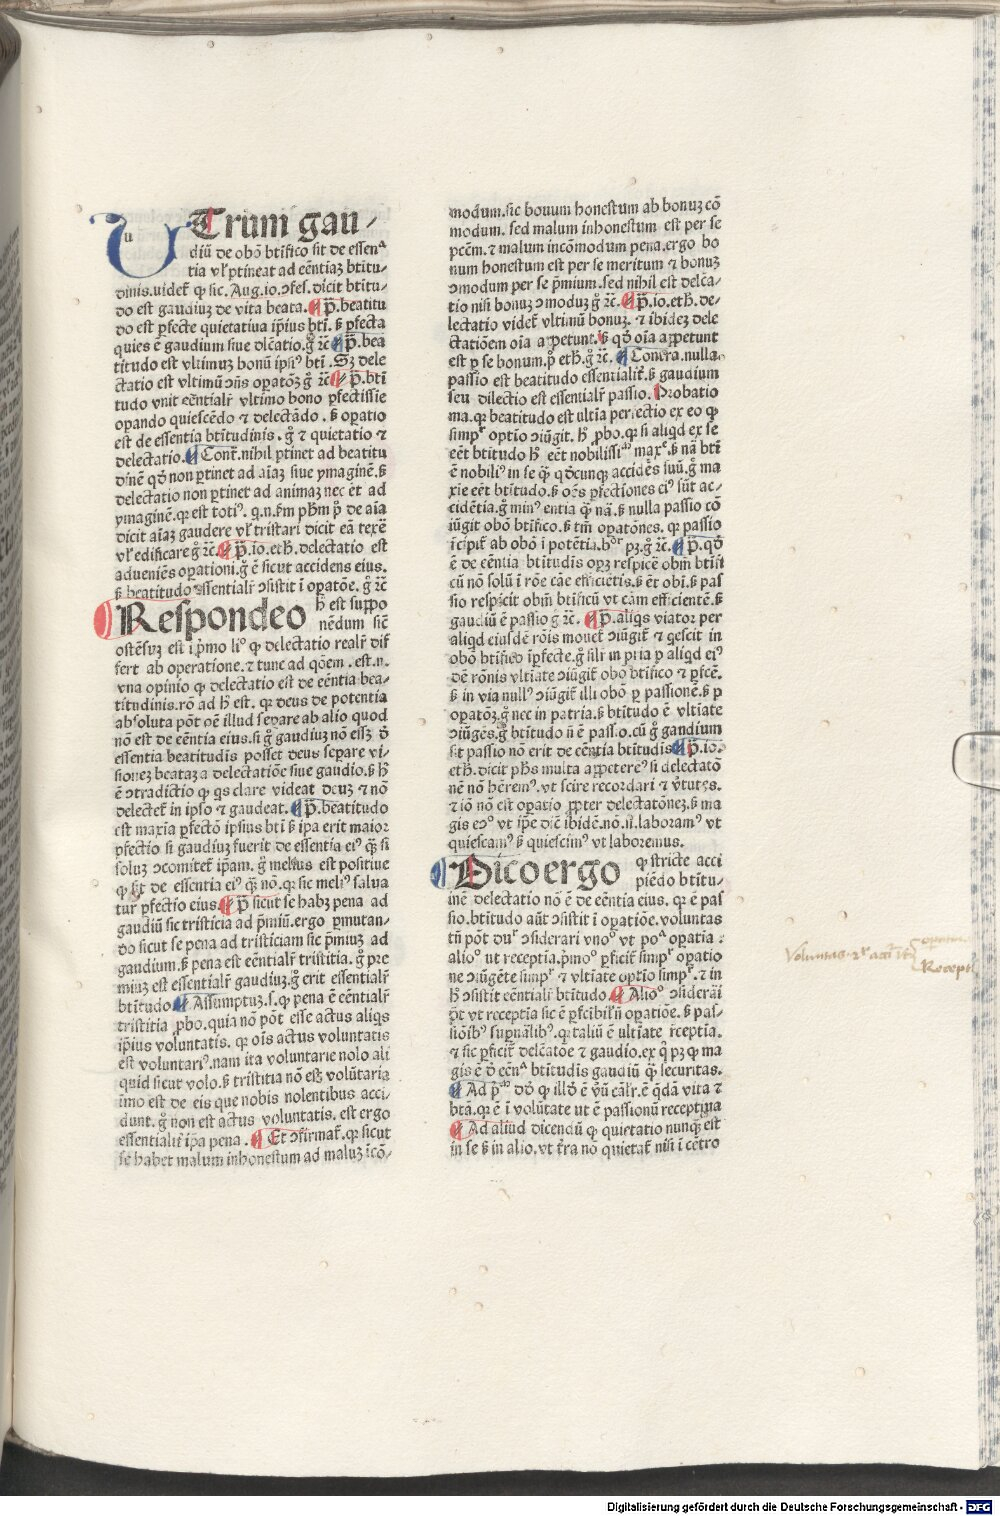 UTrum gau-
diū de obō btifico sit de essenᵃ
tia vl' ptineat ad eēntiaꝫ btitu-
dinis. videt' ꝙ sic. Aug. io. ↄfes. dicit btitu-
do est gaudiuꝫ de vita beata. p̄. beatitu
do est pfecte quietatiua ip̄ius bti. ß pfecta
quies ē gaudium siue dlc̄atio. g̊ ⁊c̄ p̄. bea
titudo est vltimuꝫ bonū ipsiꝰ bti. Sꝫ dele
ctatio est vltimū oп̄s opatōꝫ g̊ ⁊c̄ p̄. bti
tudo vnit eēntialr' vltimo bono pfectissie
opando quiescēdo ⁊ delectādo. ß opatio
est de essentia btitudinis. g̊ ⁊ quietatio ⁊
delectatio. Cont̄. nihil ptinet ad beatitu
dinē qd̄ non ptinet ad aīaꝫ siue ymaginē. ß
delectatio non ptinet ad animaꝫ nec ēt ad
ymaginē. qꝛ est totiꝰ. q. n. ẜm ph̄m p̊ de aīa
dicit aīaꝫ gaudere vl' tristari dicit eā texe
vl' edificare g̊ ⁊c̄. p̄. io. eth. delectatio est
adueniēs opationi. g̊ ē sicut accidens eius.
ß beatitudo essentialr' ↄsistit i opatōe. g̊ ⁊c̄
Respondeo h̄ est suppo
nēdum siē
ostēsuꝫ est i p̄mo liº ꝙ delectatio realr' dif
fert ab operatione. ⁊ tunc ad qōem. est. n.
vna opinio ꝙ delectatio est de eēntia bea-
titudinis. rō ad h̄ est. qꝛ deus de potentia
absoluta pōt oē illud separe ab alio quod
nō est de eēntia eius. si g̊ gaudiuꝫ nō essꝫ d̄
essentia beatitudis posset deus separe vi-
sioneꝫ beataꝫ a delectatiōe siue gaudio. ß h̄
ē ↄtradictio ꝙ qs clare videat deuꝫ ⁊ nō
delectet' in ipso ⁊ gaudeat. p̄. beatitudo
est maxia pfectō ipsius bti ß ipa erit maior
pfectio si gaudiuꝫ fuerit de essentia eiꝰ q̄ si
soluꝫ ↄcomitet' ip̄am. g̊ melius est positiue
ꝙ sit de essentia eiꝰ q̄ nō. qꝛ sic meliꝰ salua
tur pfectio eius. p̄ sicut se habꝫ pena ad
gaudiū sic tristicia ad p̄miū. ergo pmutan-
do sicut se pena ad tristiciam sic p̄miuꝫ ad
gaudium. ß pena est eēntialr' tristitia. g̊ pre
miuꝫ est essentialr' gaudiuꝫ. g̊ erit essentialr'
btitudo. Assumptuꝫ. s. ꝙ pena ē cēntialr'
tristitia pbo. quia nō pōt esse actus aliqs
ip̄ius voluntatis. qꝛ oīs actus voluntatis
est voluntariꝰ. nam ita voluntarie nolo ali
quid sicut volo. ß tristitia nō esꝫ volūtaria
īmo est de eis que nobis nolentibus acci-
dunt. g̊ non est actus voluntatis. est ergo
essentialit' ip̄a pena. Et ↄfirmat'. qꝛ sicut
se habet malum inhonestum ad maluꝫ icō-
modum. sic bonum honestum ab bonuꝫ cō
modum. sed malum inhonestum est per se
pec̄m. ⁊ malum incōmodum pena. ergo bo
num honestum est per se meritum ⁊ bonuꝫ
ↄmodum per se p̄mium. sed nihil est delc̄a-
tio nisi bonuꝫ ↄmoduꝫ g̊ ⁊c̄. p̄. io. eth. de-
lectatio videt' vltimū bonuꝫ. ⁊ ibideꝫ dele
ctatiōem oīa appetunt. ß qd̄ oīa appetunt
est p se bonum. p̊ eth. g̊ ⁊c̄. Contra. nulla
passio est beatitudo essentialit'. ß gaudium
seu dilectio est essentialr' passio. Probatio
ma. qꝛ beatitudo est vltia perfectio ex eo ꝙ
simpʳ optīo ↄiūgit. h̄ pbo. qꝛ si aliqd ex se
eēt btitudo h̄ eēt nobilissiᵘ maxᵉ. ß nā bti
ē nobiliꝰ in se q̄ qd̄cunqꝫ accidēs suū. g̊ ma
xie eēt btitudo. ß oēs pfectiones eiꝰ sūt ac-
cidētia. g̊ minꝰ entia q̄ nā. ß nulla passio cō
iūgit obō btifico. ß tm̄ opatōnes. qꝛ passio
icipit' ab obō i potētia. hᵒʳ pꝫ. g̊ ⁊c̄. p̄. qd̄
ē de eēntia btitudis opꝫ respicē obm̄ btifi
cū nō solū i rōe cāe efficiētis. ß ēt obi. ß pas
sio respicit obm̄ btificū vt cām efficientē. ß
gaudiū ē passio g ⁊c̄. p̄. aliqs viator per
aliqd eiusdē rōis mouet' ↄiūgit' ⁊ qescit in
obō btifico ip̄fecte. g̊ silr' in pria p aliqd eiꝰ
dē rōnis vltiate ↄiūgit' obo btifico ⁊ pfcē.
ß in via nullꝰ ↄiūgit' illi obō p passionē. ß p
opatōꝫ. g̊ nec in patria. ß btitudo ē vltiate
ↄiūgēs. g̊ btitudo n̄ ē passio. cū g̊ gandium
sit passio nō erit de eēntia btitudis p̄. io.
eth. dicit ph̄s multa appetereꝰ si delectatō
nē nō h̄remꝰ. vt scire recordari ⁊ v̄tutes.
⁊ iō nō est opatio ppter delectatōneꝫ. ß ma
gis ecͦ vt ip̄e dic̄ ibidē. nō. n. laboramꝰ vt
quiescamꝰ ß quiescimꝰ vt laboremus.
Dico ergo ꝙ stricte acci
piēdo btitu-
inē delectatio nō ē de eēntia eius. qꝛ ē pas
sio. btitudo aūt ↄsistit i opatiōe. voluntas
tn̄ pōt duʳ ↄsiderari vnoº vt poᵃ opatia:
alioº ut receptia. p̄moº pficit' simpʳ opatio
ne ↄiūgēte simpʳ ⁊ vltiate optīo simpʳ. ⁊ in
h̄ ↄsistit eēntialr' btitudo. Alioº ↄsiderāi
pt vt receptia sic ē pfcibil' n̄ opatiōe. ß pas-
siōibꝰ supnalibꝰ. qꝛ taliū ē ultiate receptia.
⁊ sic pficit' delc̄atōe ⁊ gaudio. ex q̊ pꝫ ꝙ ma
gis ē d̄ eēnᵃ btitudis gaudiū q̄ securitas.
Ad p̄ᵘᵐ dō ꝙ ill'd ē v̄ū cālr'. ē qdā vita ⁊
btā. qꝛ ē i volūtate ut ē passionū receptiua
Ad aliud dicendū ꝙ quietatio nunqꝫ est
in se ß in alio. vt t'ra nō quietat' nisi i cētro
Voluntas. 2ʳ acci'r
Recepti
Digitalisierung gefördert durch die Deutsche Forschungsgemeinschaft - DFG